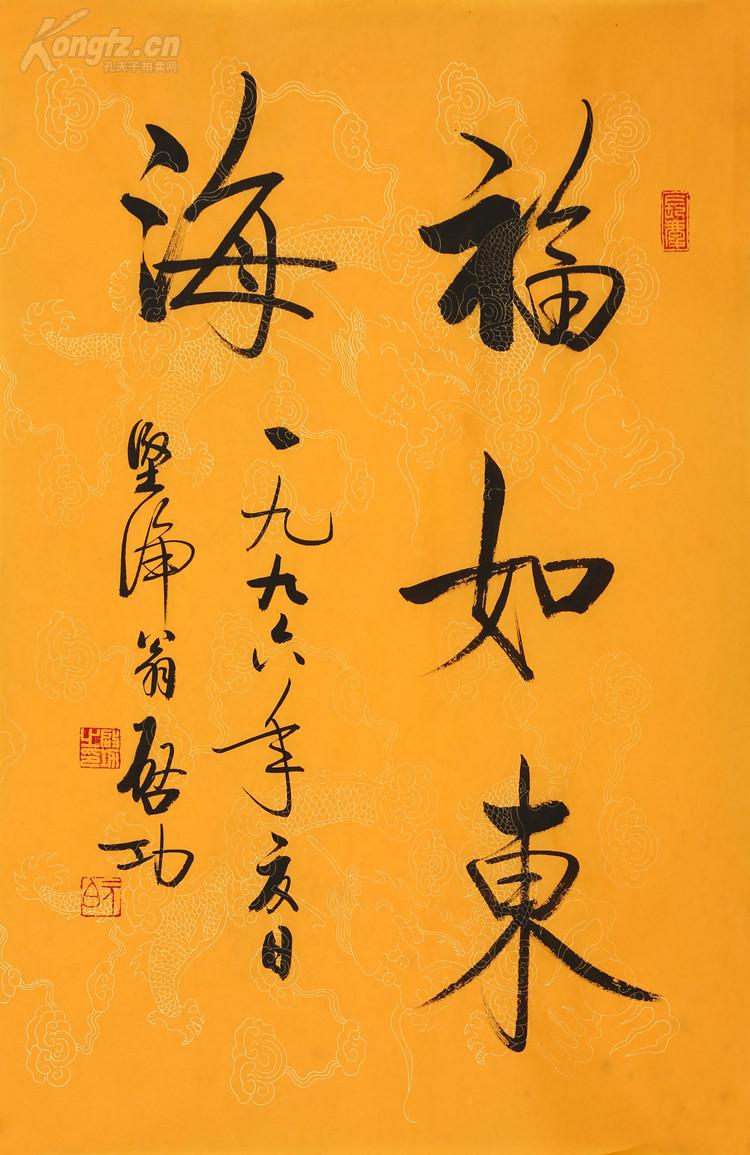 福如東
海
一九九六年夏日
堅淨翁
啓功
Kongfz.cn
孔夫子拍卖网